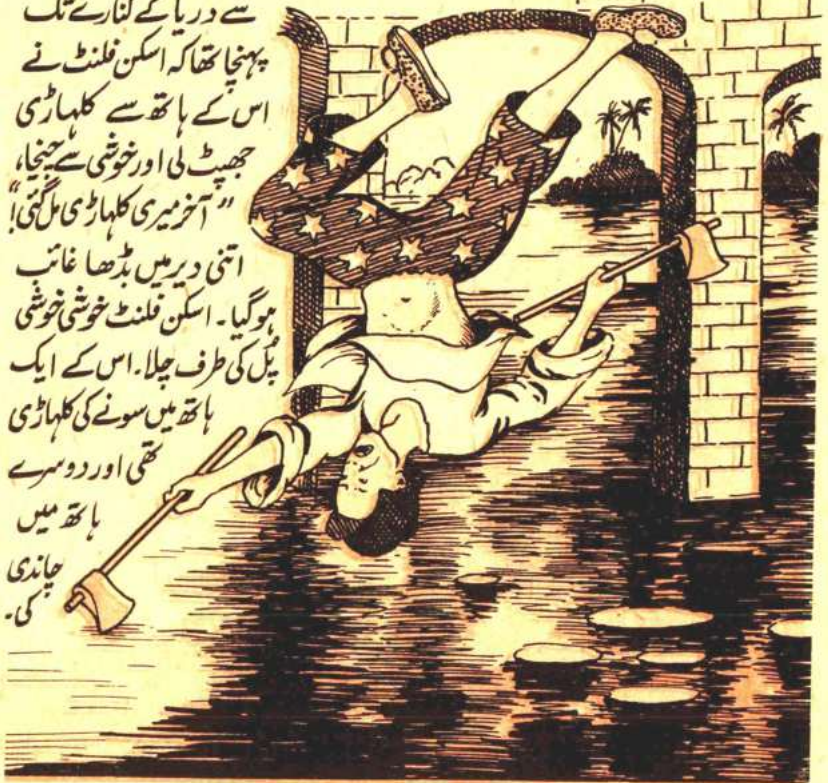 سے دریا کے کنارے تک
پہنچا تھا کہ اسکن فلنٹ نے
اس کے ہاتھ سے کلہاڑی
جھپٹ لی اور خوشی سے چیخا،
"آخر میری کلہاڑی مل گئی!"
اتنی دیر میں بڈھا غائب
ہوگیا۔ اسکن فلنٹ خوشی خوشی
پُل کی طرف چلا۔ اس کے ایک
ہاتھ میں سونے کی کلہاڑی
تھی اور دوسرے
ہاتھ میں
چاندی
کی۔